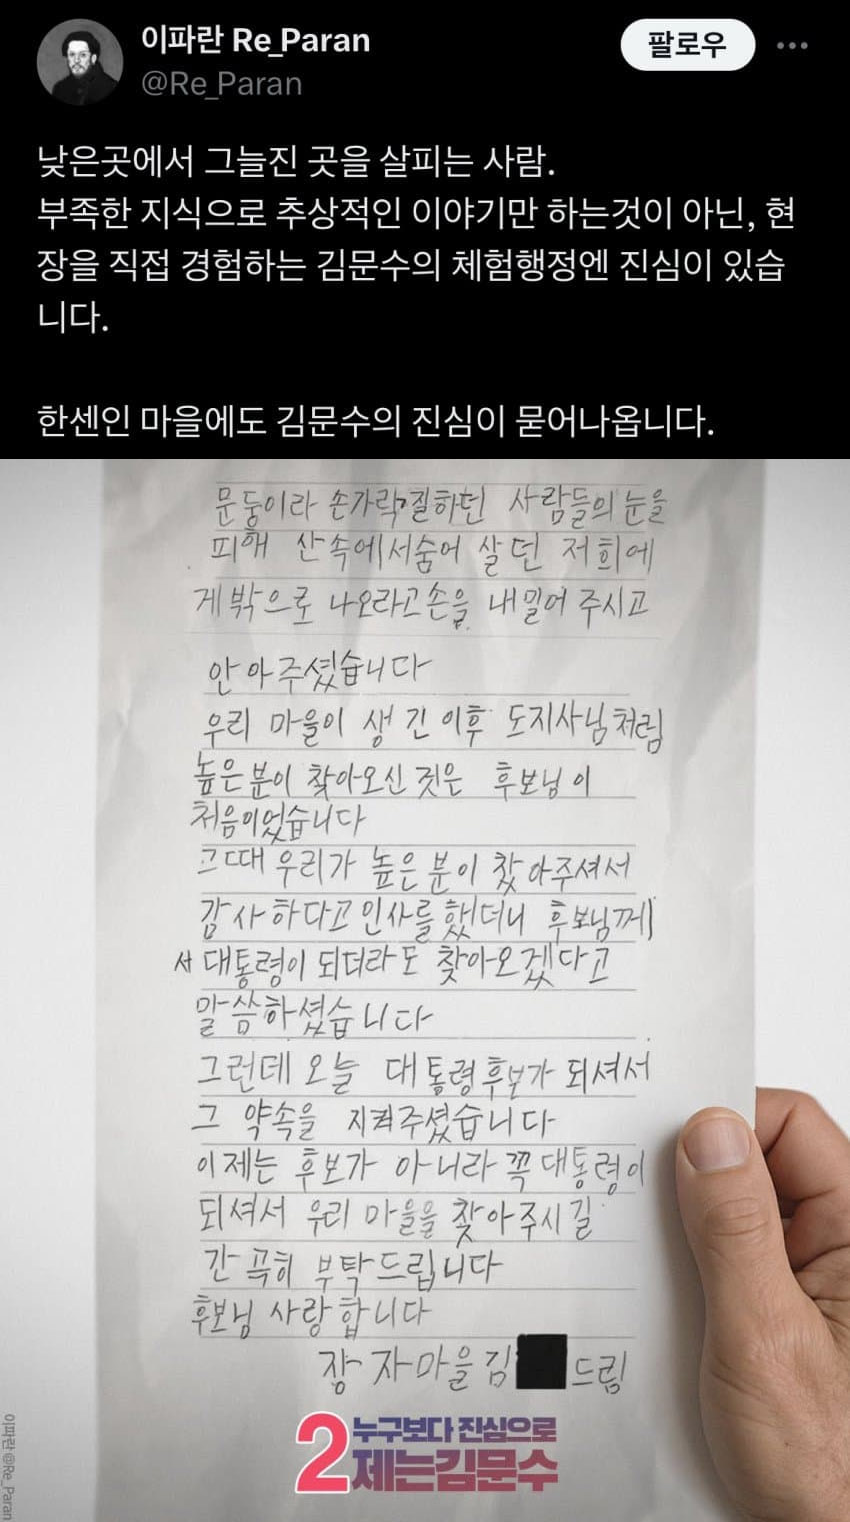 이파란 Re_Paran
@Re_Paran
팔로우
낮은곳에서 그늘진 곳을 살피는 사람.
부족한 지식으로 추상적인 이야기만 하는것이 아닌, 현
장을 직접 경험하는 김문수의 체험행정엔 진심이 있습
니다.
한센인 마을에도 김문수의 진심이 묻어나옵니다.
문둥이라 손가락질하던 사람들의 눈을
피해 산속에서숨어 살던 저희에
게 밖으로 나오라고손을 내밀어 주시고
안아주셨습니다
우리 마을이 생긴 이후 도지사님처럼
높은분이 찾아오신 것은 후보님이
처음이었습니다
그때 우리가 높은 분이 찾아주셔서
감사하다고 인사를 했더니 후보님께
서 대통령이 되더라도 찾아오겠다고
말씀하셨습니다
그런데 오늘 대통령후보가 되셔서
그 약속을 지켜주셨습니다
이제는 후보가 아니라 꼭 대통령이
되셔서 우리 마을을 찾아주시길
간곡히 부탁드립니다
후보님 사랑합니다
장자마을 김 드림
2 누구보다 진심으로
제는김문수
이파란 @Re_Paran